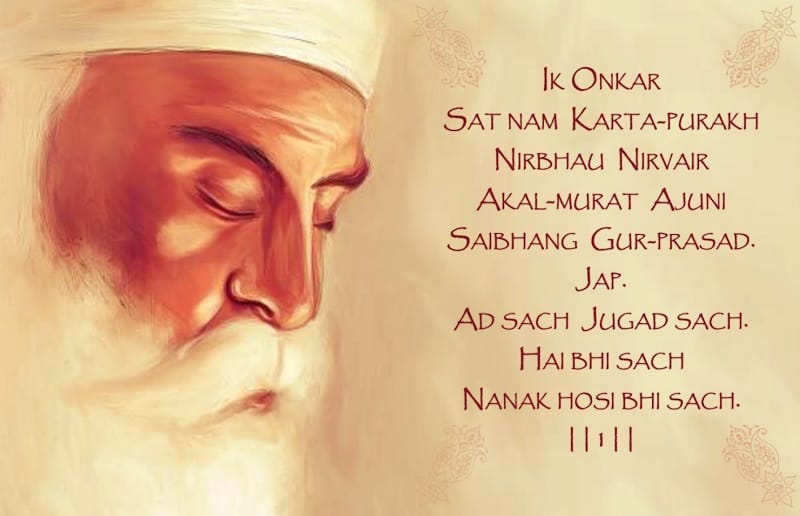 Ik Onkar
Sat nam Karta-purakh
Nirbhau Nirvair
Akal-murat Ajuni
Saibhang Gur-prasad.
Jap.
Ad sach Jugad sach.
Hai bhi sach
Nanak hosi bhi sach.
||1||